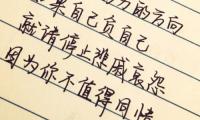 的方向
果自己负自己
就请停止悲戚哀怨
因为你不值得同情